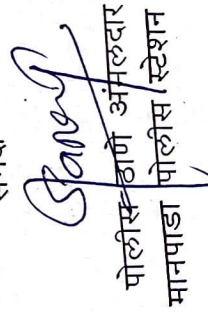 पोलीस ठाणे अंमलदार
मानपाडा पोलीस स्टेशन